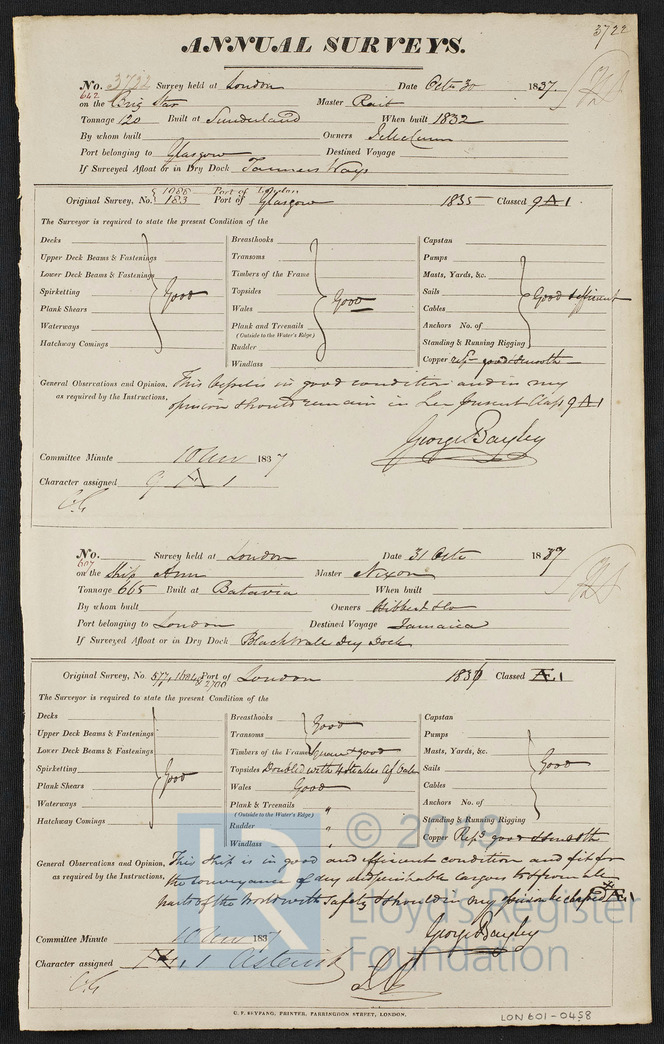 3722
ANNUAL SURVEYS.
No. 3722 Survey held at London Date Octr 30 1837.
642
on the Brig Star Master Rait
Tonnage 120 Built at Sunderland When built 1832
By whom built Owners
Port belonging to Glasgow Destined Voyage
If Surveyed Afloat or in Dry Dock Tanners Ways
1088 Port of London
Original Survey, No. 183 Port of Glasgow 1835 Classed 9 A 1
The Surveyor is required to state the present Condition of the
Decks
Upper Deck Beams & Fastenings
Lower Deck Beams & Fastenings
Spirketting Good
Plank Shears
Waterways
Hatchway Comings
Breasthooks
Transoms
Timbers of the Frame
Topsides
Wales Good
Plank and Treenails
(Outside to the Water's Edge)
Rudder
Windlass
Capstan
Pumps
Masts, Yards, &c.
Sails Good & efficient
Cables
Anchors No. of
Standing & Running Rigging
Copper repd good & smooth
General Observations and Opinion, This Vessel is in good condition and in my
as required by the Instructions, opinion should remain in her present Class 9 A 1
George Bayley
Committee Minute 10 Nov 1837
Character assigned 9 A 1
C.G
No. Survey held at London Date 31 Octr 1837
607
on the Ship Ann Master Nixon
Tonnage 665 Built at Batavia When built
By whom built Owners Hibbert & Co
Port belonging to London Destined Voyage Jamaica
If Surveyed Afloat or in Dry Dock Blackwall Dry Dock
Original Survey, No. 577, Port of London 1836 Classed Æ 1
2700
The Surveyor is required to state the present Condition of the
Decks
Upper Deck Beams & Fastenings
Lower Deck Beams & Fastenings
Spirketting Good
Plank Shears
Waterways
Hatchway Comings
Breasthooks Good
Transoms
Timbers of the Frame good
Topsides Doubled with
Wales Good
Plank & Treenails "
(Outside to the Water's Edge)
Rudder "
Windlass "
Capstan
Pumps
Masts, Yards, &c.
Sails Good
Cables
Anchors No. of
Standing & Running Rigging
Copper Repd good & smooth
General Observations and Opinion, This Ship is in good and efficient condition and fit for
as required by the Instructions, the conveyance of dry and perishable cargoes to & from all
parts of the World with safety & should in my opinion be classed Æ 1
George Bayley
Committee Minute 10 Nov 1837
Character assigned Æ 1 Asterisk
C.G
G. F. BEYFANG, PRINTER, FARRINGDON STREET, LONDON.
LON 601-0458
LR
© 2019
Lloyd's Register
Foundation